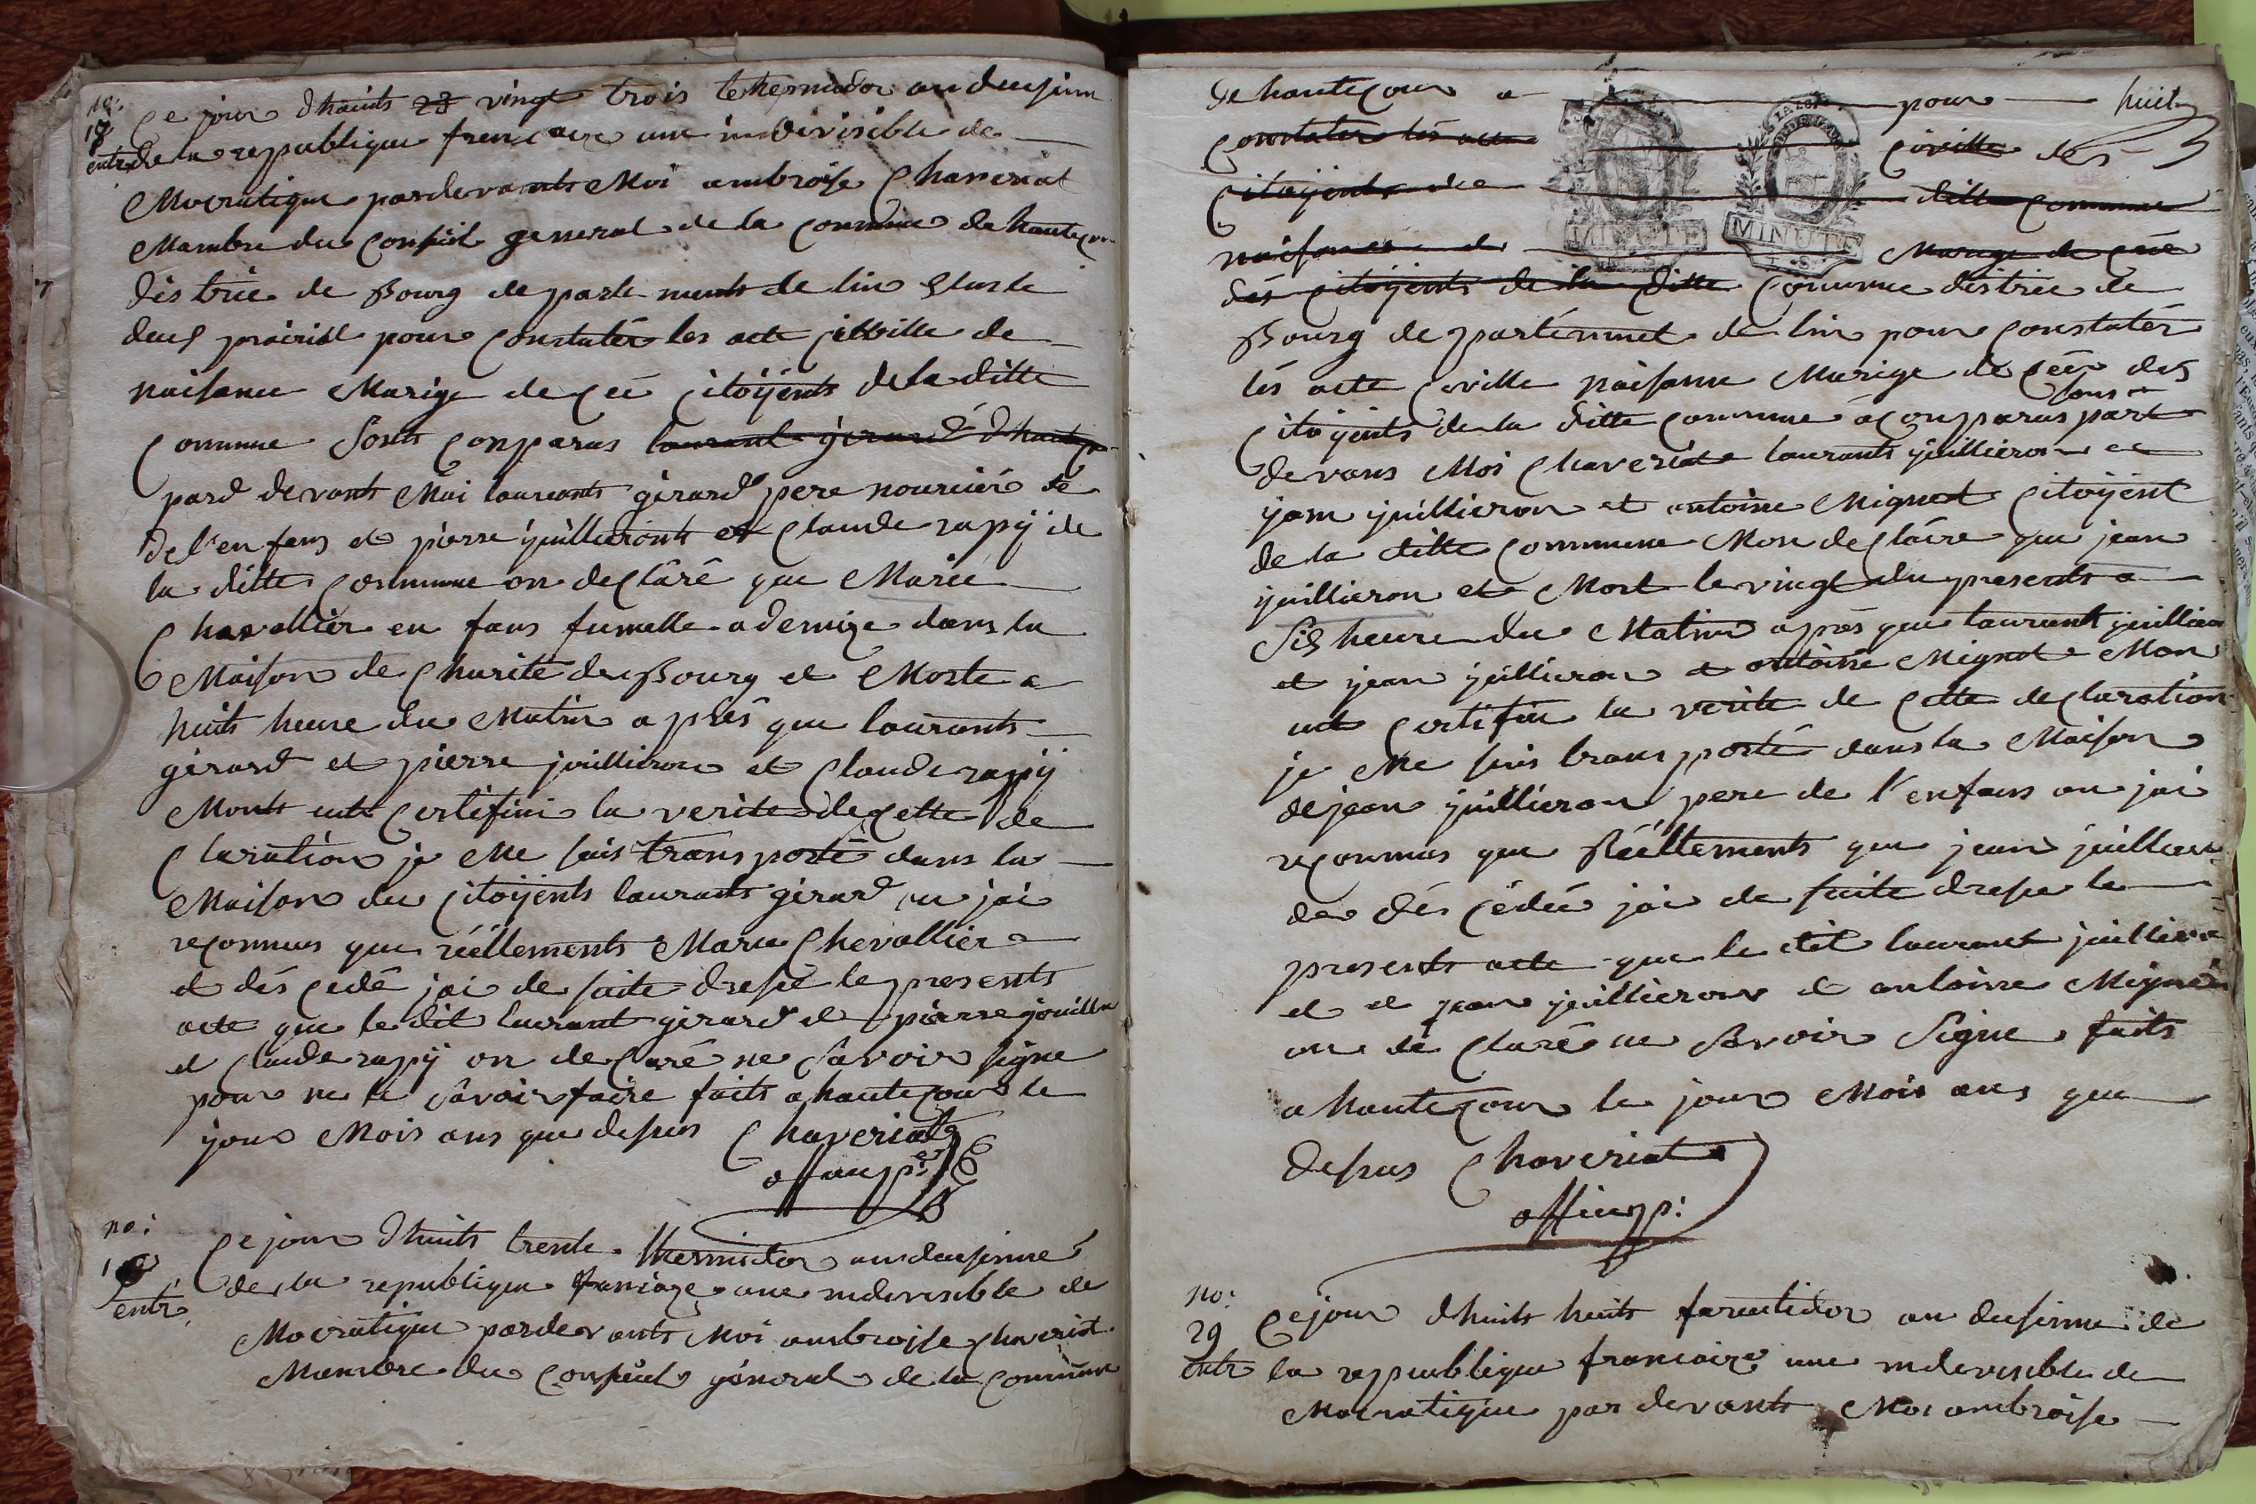 no:
18
entr
Ce jour dhuits 23 vingt trois tehermidor an deusieme
de la republique francaise une indivisible de
Mocratique pardevants Moi ambroise Chaveriat
Mambre du Conseil general de la Commune de hautecour
distric de Bourg departements de lin Elus le
deus prairial pour Constatér les acte Civille de
naisance Marige deceé Citoÿents de la ditte
Commune sonts Conparus laurant girard d hautecour
pard devants Moi laurants girard pere nouricié de
de l'enfans et pierre juillierons et Claude rapÿ de
la ditte Commune on declaré que Marie
Chavallier en fans fumelle ademize dans la
Maison de Charité du Bourg et Morte a
huits heure du Matin a prés que laurants
girard et pierre juillieron et Claude rapÿ
Monts ent Certifini la verite de cette de
Claration je Me suis transporté dans la
Maison du Citoÿents laurants girard ou jai
reconnus que réellements Marie Chevallier
et dés cedé jai de suite dresé le presents
acte que le dit laurant girard et pierre jouill
et Claude rapÿ on de Claré ne Savoir signe
pour ne le savoir faire faits a hautecour le
jour Mois ans que desus Chaveriat
offi up:er
no:
entr
Ce jour dhuits trente thermidor an deusieme
de la republique franciaze une indivisible de
Mocratique pardevants Moi ambroisse Chaveriat
Membre du Conseul général de la Commune
de hautecour a pour huit
Constater les acte Civille des
Citoÿents de ditte Commune
naisance d Marige de Ceée
dés Citoÿents de la ditte Commune distric de
Bourg de partement de lin pour Constatér
lés acte Civille naisanse Marige de ceér des
Citoÿents de la ditte Commune a Conparus part
devans Moi Chaveriat laurants juillieron et
jean juillieron et antoine Mignot Citoÿent
de la ditte Commune Mon de Claire que jean
juillieron et Mort le vingt du presents a
Sis heure du Matin aprés que laurant juillieron
et jean juillieron et antoine Mignot Mon
ent Certifini la verite de Cette declaration
je Me suis transporté dans la Maison
de jean juillieron pere de l'enfans ou jai
reconnus que Réellements que jean juillieron
dés Cédée jai de suite drese le
presents acte que le dit laurant juillieron
et et jean juillieron et antoine Mignot
on dé Claré ne Savoir Signe faits
a hautecour le jour Mois ans que
desus Chaveriat
offi up:
no:
29
entr
Ce jour dhuits huits faructidor an deusieme de
la reppublique francaize une indevisible de
Mocratique par devants Moi ambroise
MINUTE
MINUTE